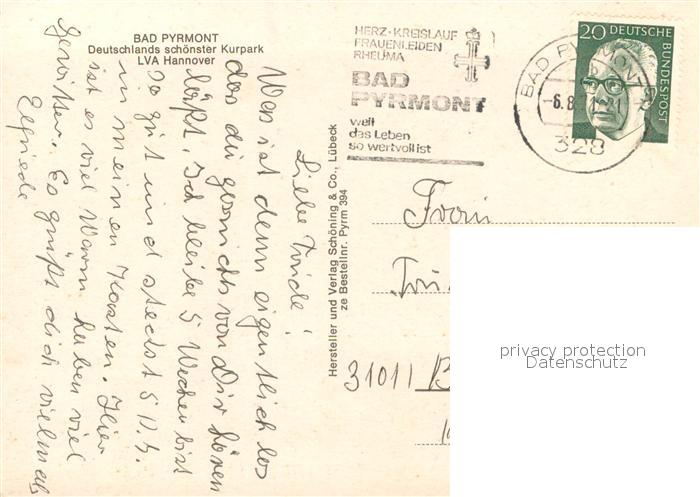 BAD PYRMONT
Deutschlands schönster Kurpark
LVA Hannover
Liebe Trude!
Was ist denn eigentlich los
das du garnichts von Dir hören
läßt. Ich bleibe 5 Wochen bist
so gut und steckst 5 D.
in meinen Kasten. Hier
ist es viel Warm haben viel
Gewitter. Es grüßt dich vielmals
Elfriede
Hersteller und Verlag Schöning & Co., Lübeck
ze Bestellnr. Pyrm 394
HERZ-KREISLAUF
FRAUENLEIDEN
RHEUMA
BAD
PYRMONT
weil
das Leben
so wertvoll ist
BAD PYRMONT
-6.8.71-21
328
20 DEUTSCHE
BUNDESPOST
Frau
31011
privacy protection
Datenschutz